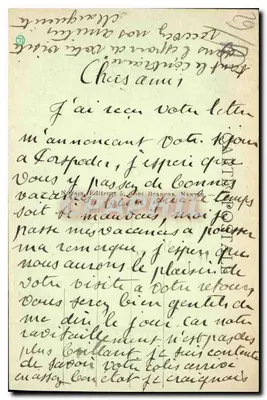 dans l'espoir de votre visite
recevez nos amitiés
Marguerite
Chers amis
J'ai reçu votre lettre
m'annonçant votre séjour
a j'espère que
vous y passez de bonnes
vacances quoique le temps
soit si mauvais moi je
passe mes vacances a pousser
ma remorque, j'espère que
nous aurons le plaisir de
votre visite a votre retour
vous serez bien gentils de
me dire le jour car notre
ravitaillement n'est pas des
plus brillant je suis contente
de savoir votre colis arrivé
en assez bon état je craignais